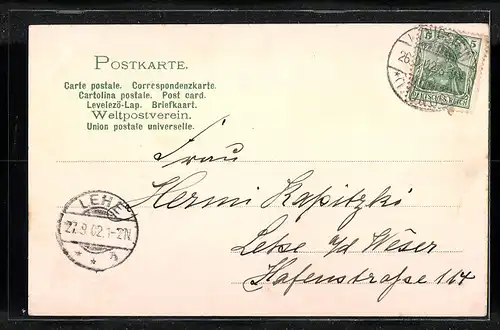 POSTKARTE.
Carte postale. Correspondenzkarte.
Cartolina postale. Post card.
Levelező-Lap. Briefkaart.
Weltpostverein.
Union postale universelle.
5 5
DEUTSCHES REICH
Frau
Hermi Kapitzki
Lehe a/d Weser
Hafenstraße 164
LEHE
27.9.02.1-2N.